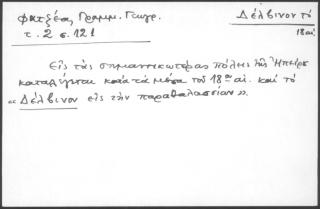 Φατζέας Γραμμ. Γεωγρ.
τ. 2 σ. 121
Δέλβινον τό
18 αἰ.
Εἰς τάς σημαντικωτέρας πόλεις τῆς Ἠπείρου
καταλέγεται κατά τά μέσα τοῦ 18ου αἰ. καί τό
«Δέλβινον εἰς τήν παραθαλασσίαν».